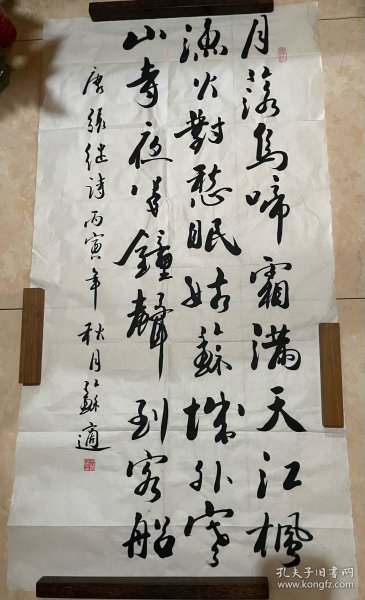 月落烏啼霜滿天江楓
漁火對愁眠姑蘇城外寒
山寺夜半鐘聲到客船
唐張继詩丙寅年秋月蘇適
孔夫子旧书网
www.kongfz.com